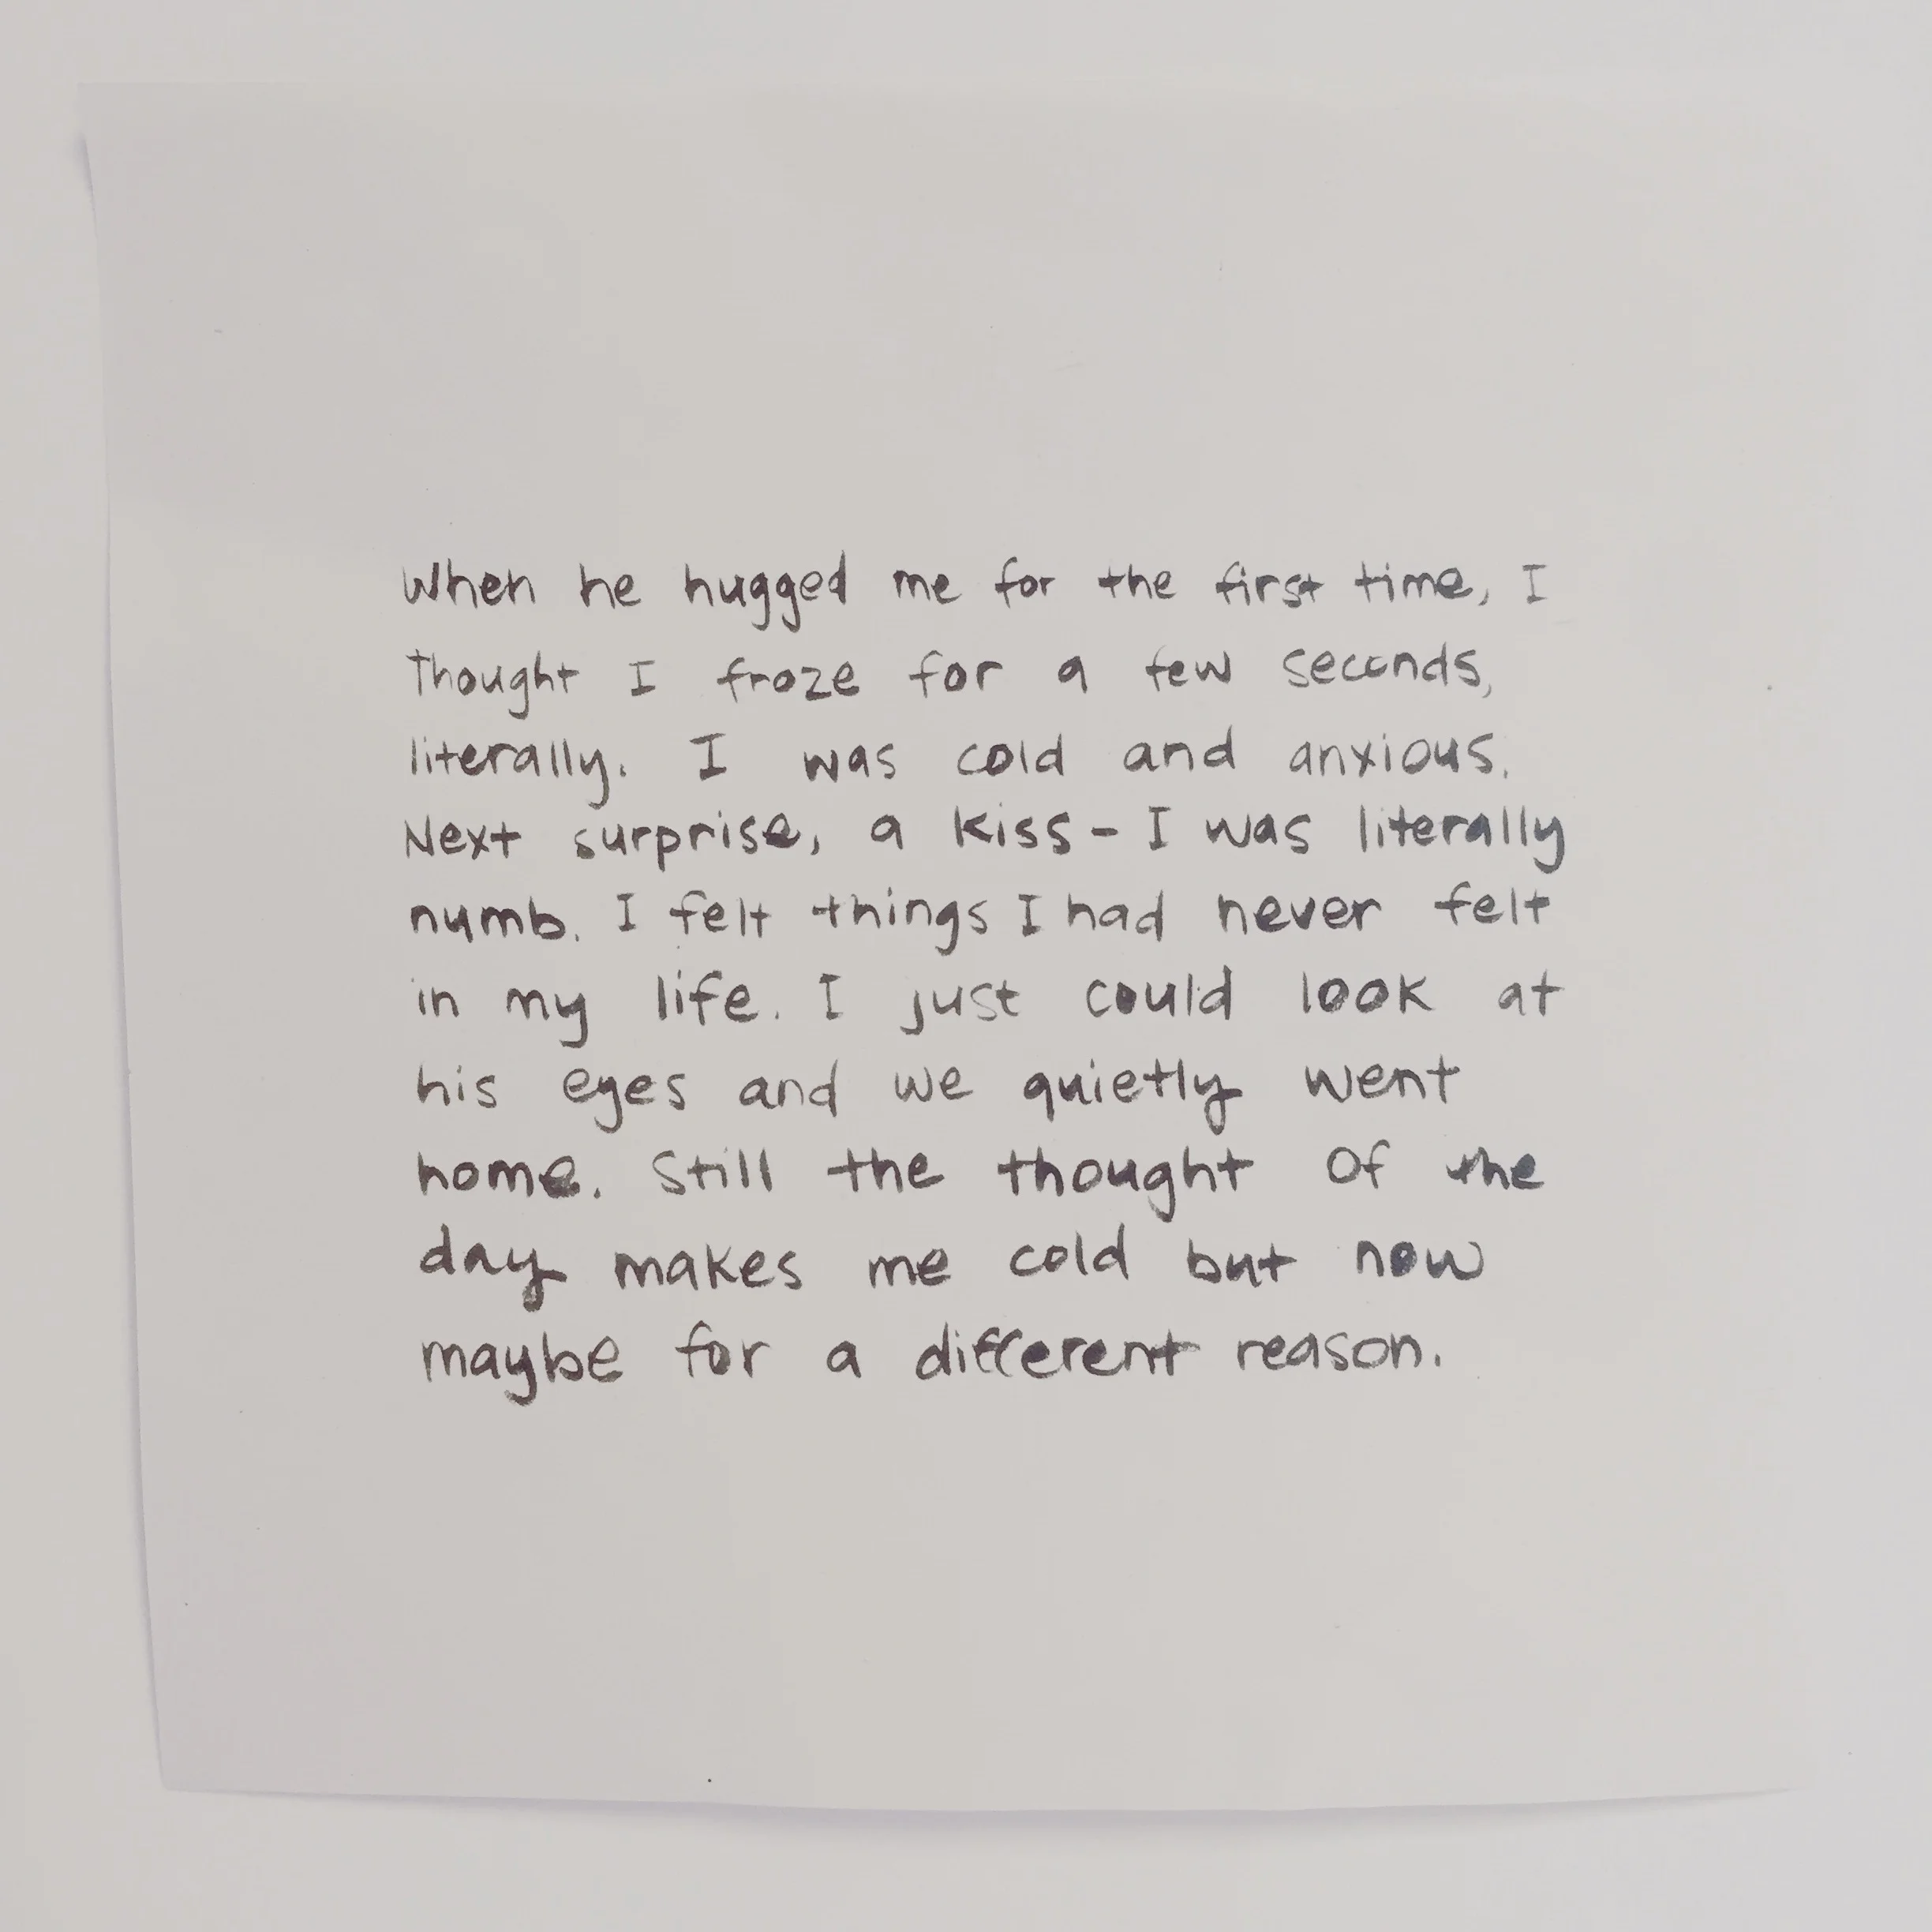 When he hugged me for the first time, I
thought I froze for a few seconds,
literally. I was cold and anxious.
Next surprise, a kiss - I was literally
numb. I felt things I had never felt
in my life. I just could look at
his eyes and we quietly went
home. Still the thought of the
day makes me cold but now
maybe for a different reason.